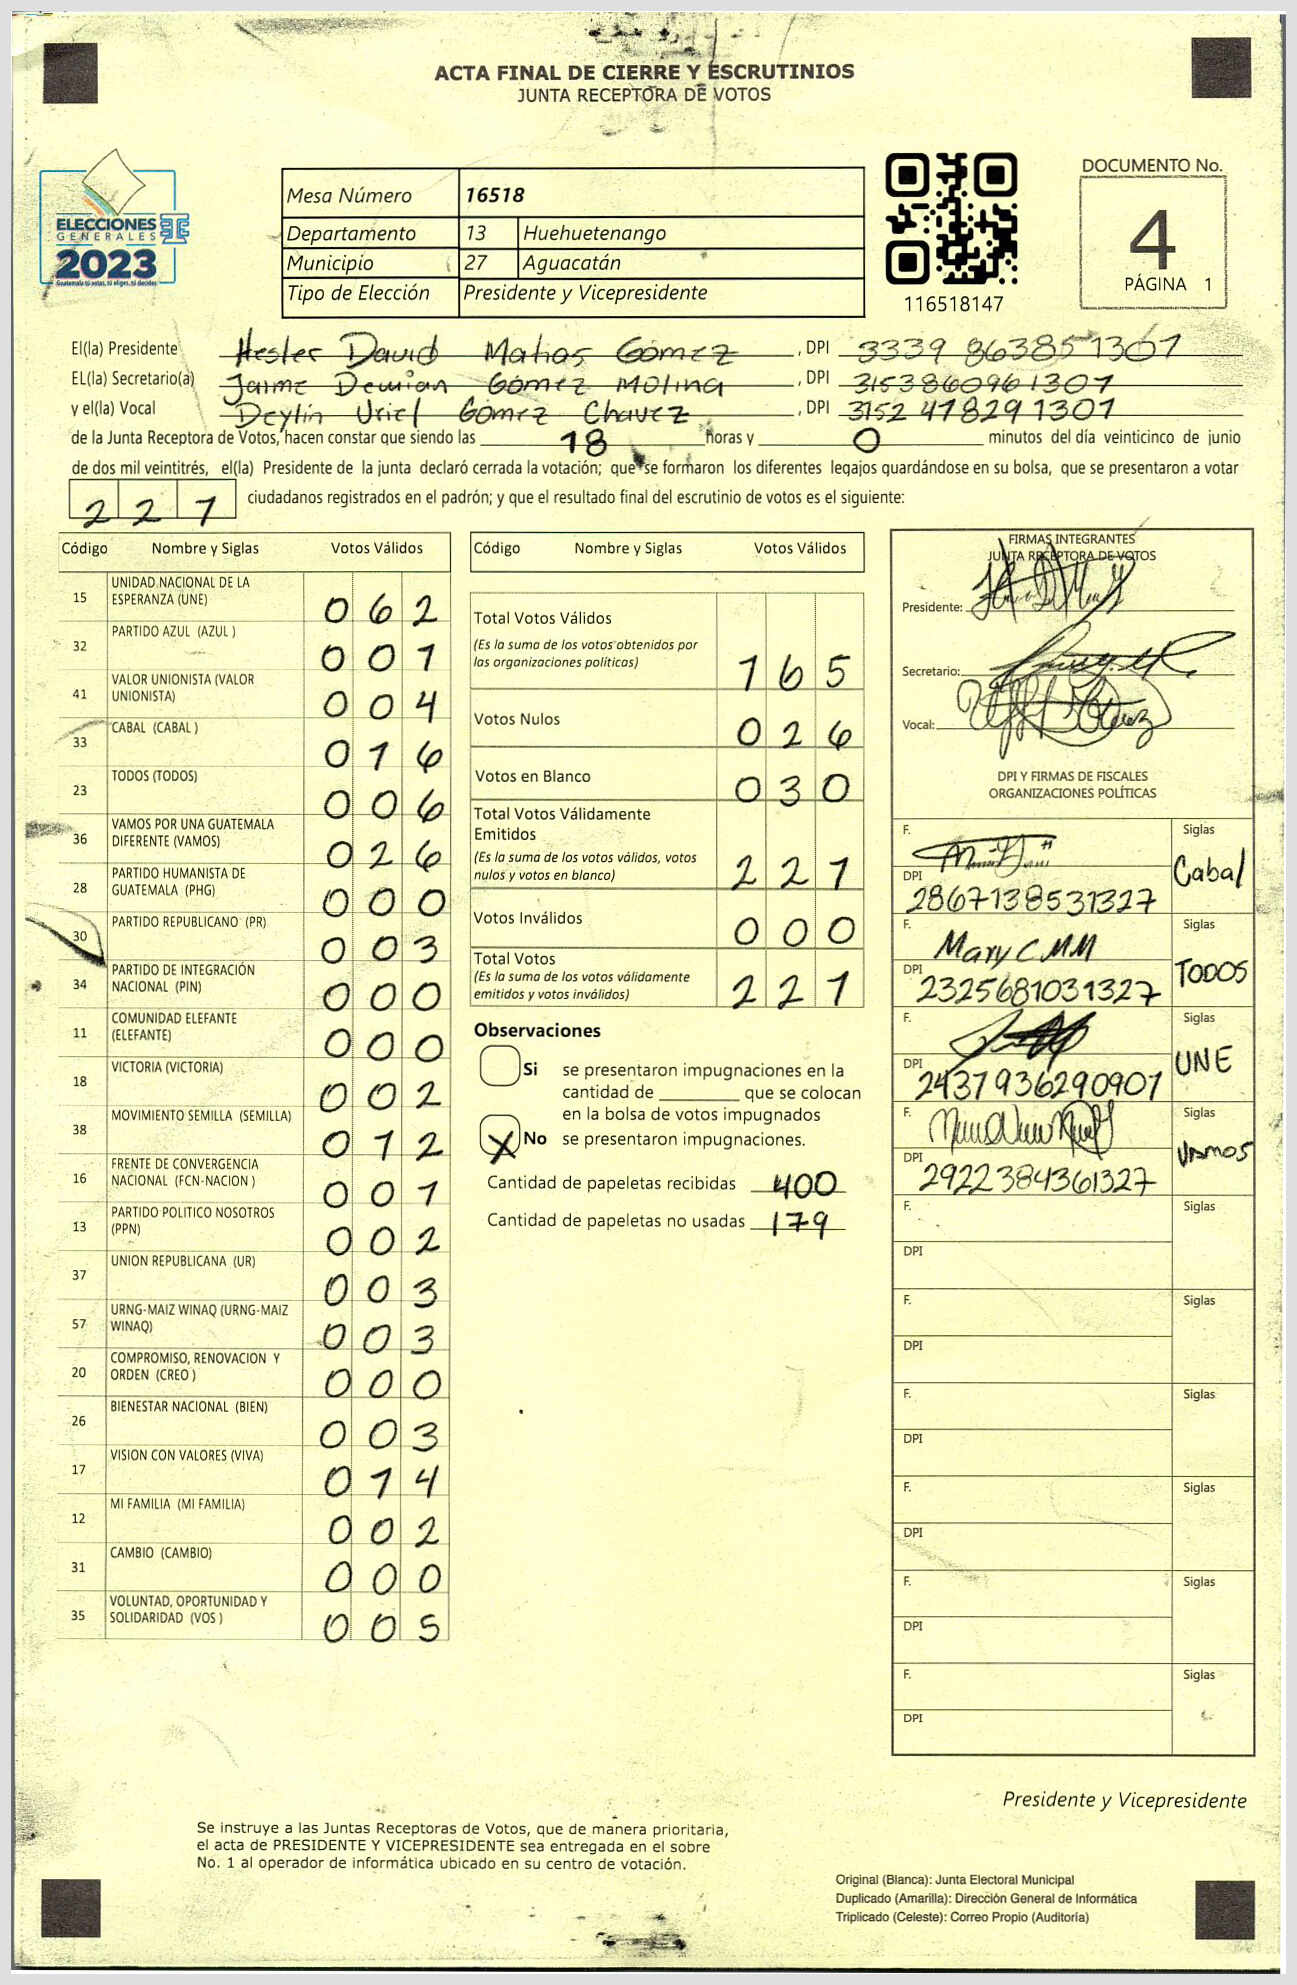 ACTA FINAL DE CIERRE Y ESCRUTINIOS
JUNTA RECEPTORA DE VOTOS
ELECCIONES
GENERALES
2023
Guatemala tú votas, tú eliges, tú decides
Mesa Número 16518
Departamento 13 Huehuetenango
Municipio 27 Aguacatán
Tipo de Elección Presidente y Vicepresidente
116518147
DOCUMENTO No.
4
PÁGINA 1
El(la) Presidente Hesler David Matias Gómez , DPI 3339 863851301
EL(la) Secretario(a) Jaime Demian Gómez Molina , DPI 3153860961301
y el(la) Vocal Deylin Uriel Gómez Chavez , DPI 3152 418291301
de la Junta Receptora de Votos, hacen constar que siendo las 18 horas y 0 minutos del día veinticinco de junio
de dos mil veintitrés, el(la) Presidente de la junta declaró cerrada la votación; que se formaron los diferentes legajos guardándose en su bolsa, que se presentaron a votar
221 ciudadanos registrados en el padrón; y que el resultado final del escrutinio de votos es el siguiente:
Código Nombre y Siglas Votos Válidos
15 UNIDAD NACIONAL DE LA
ESPERANZA (UNE) 062
32 PARTIDO AZUL (AZUL ) 001
41 VALOR UNIONISTA (VALOR
UNIONISTA) 004
33 CABAL (CABAL ) 016
23 TODOS (TODOS) 006
36 VAMOS POR UNA GUATEMALA
DIFERENTE (VAMOS) 026
28 PARTIDO HUMANISTA DE
GUATEMALA (PHG) 000
30 PARTIDO REPUBLICANO (PR) 003
34 PARTIDO DE INTEGRACIÓN
NACIONAL (PIN) 000
11 COMUNIDAD ELEFANTE
(ELEFANTE) 000
18 VICTORIA (VICTORIA) 002
38 MOVIMIENTO SEMILLA (SEMILLA) 012
16 FRENTE DE CONVERGENCIA
NACIONAL (FCN-NACION ) 001
13 PARTIDO POLITICO NOSOTROS
(PPN) 002
37 UNION REPUBLICANA (UR) 003
57 URNG-MAIZ WINAQ (URNG-MAIZ
WINAQ) 003
20 COMPROMISO, RENOVACION Y
ORDEN (CREO ) 000
26 BIENESTAR NACIONAL (BIEN) 003
17 VISION CON VALORES (VIVA) 014
12 MI FAMILIA (MI FAMILIA) 002
31 CAMBIO (CAMBIO) 000
35 VOLUNTAD, OPORTUNIDAD Y
SOLIDARIDAD (VOS ) 005
Código Nombre y Siglas Votos Válidos
Total Votos Válidos
(Es la suma de los votos obtenidos por
las organizaciones políticas) 165
Votos Nulos 026
Votos en Blanco 030
Total Votos Válidamente
Emitidos
(Es la suma de los votos válidos, votos
nulos y votos en blanco) 221
Votos Inválidos 000
Total Votos
(Es la suma de los votos válidamente
emitidos y votos inválidos) 221
Observaciones
Si se presentaron impugnaciones en la
cantidad de ________ que se colocan
en la bolsa de votos impugnados
X No se presentaron impugnaciones.
Cantidad de papeletas recibidas 400
Cantidad de papeletas no usadas 179
FIRMAS INTEGRANTES
JUNTA RECEPTORA DE VOTOS
Presidente:
Secretario:
Vocal:
DPI Y FIRMAS DE FISCALES
ORGANIZACIONES POLÍTICAS
F. Siglas
Cabal
DPI
2867138531327
F. Mary C.MM Siglas
TODOS
DPI
2325681031327
F. Siglas
UNE
DPI
2437936290901
F. Siglas
VAMOS
DPI
2922384361327
F. Siglas
DPI
F. Siglas
DPI
F. Siglas
DPI
F. Siglas
DPI
F. Siglas
DPI
F. Siglas
DPI
Presidente y Vicepresidente
Se instruye a las Juntas Receptoras de Votos, que de manera prioritaria,
el acta de PRESIDENTE Y VICEPRESIDENTE sea entregada en el sobre
No. 1 al operador de informática ubicado en su centro de votación.
Original (Blanca): Junta Electoral Municipal
Duplicado (Amarilla): Dirección General de Informática
Triplicado (Celeste): Correo Propio (Auditoría)